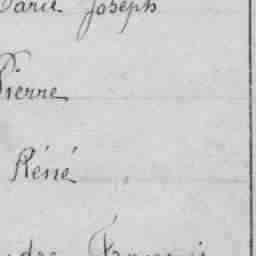 Marie Joseph
Pierre
Réné
François